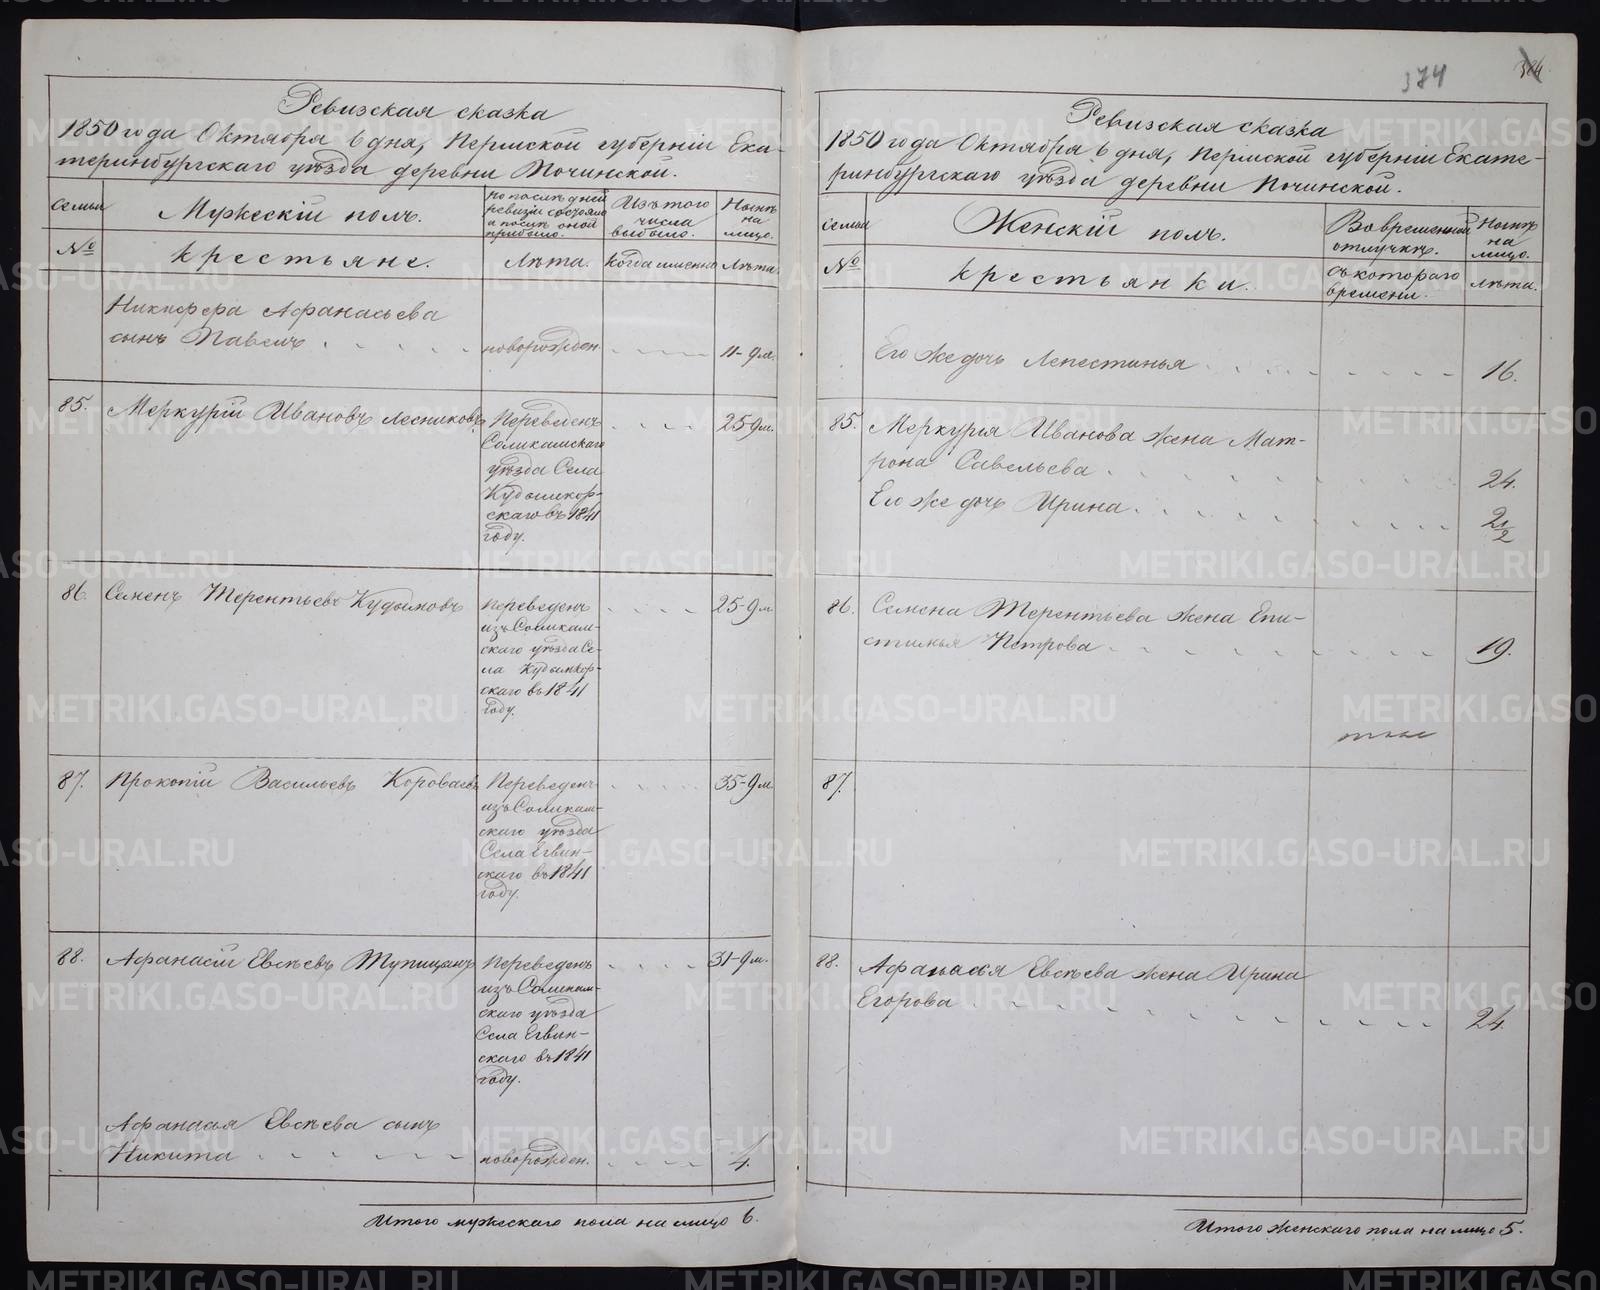 Ревизская сказка
1850 года Октября 6 дня, Пермской губерніи Ека-
теринбургскаго уѣзда деревни Починской.
семьи
Мужескій полъ.
По послѣдней
ревизіи состояло
и послѣ оной
прибыло.
Изъ того
числа
выбыло.
Нынѣ
на
лицо.
№
крестьяне.
Лѣта.
Когда именно
Лѣта.
Никифера Афанасьева
сынъ Павелъ
новорожден.
11-9м.
85.
Меркурій Ивановъ Лесниковъ
Переведенъ
Соликамскаго
уѣзда Села
Кудымкор-
скаго въ 1841
году.
25-9м.
86.
Семенъ Терентьевъ Кудымовъ
Переведенъ
изъ Соликам-
скаго уѣзда Се-
ла Кудымкор-
скаго въ 1841
году.
25-9м.
87.
Прокопій Васильевъ Короваевъ
Переведенъ
изъ Соликам-
скаго уѣзда
Села Егвин-
скаго въ 1841
году.
35-9м.
88.
Афанасій Евсѣевъ Тупицынъ
Переведенъ
изъ Соликам-
скаго уѣзда
Села Егвин-
скаго въ 1841
году.
31-9м.
Афанасья Евсѣева сынъ
Никита
новорожден.
4.
Итого мужескаго пола на лицо 6.
374
Ревизская сказка
1850 года Октября 6 дня, Пермской губерніи Екате-
ринбургскаго уѣзда деревни Починской.
семьи
Женскій полъ.
Во временной
отлучкѣ.
Нынѣ
на
лицо.
№
крестьянки.
Съ котораго
времени.
Лѣта.
Его же дочь Лепестинья
16.
85.
Меркурья Иванова жена Мат-
рона Савельева
24.
Его же дочь Ирина
2 1/2
86.
Семена Терентьева жена Епи-
стимья Петрова
19.
87.
88.
Афанасья Евсѣева жена Ирина
Егорова
24.
Итого женскаго пола на лицо 5.
METRIKI.GASO-URAL.RU